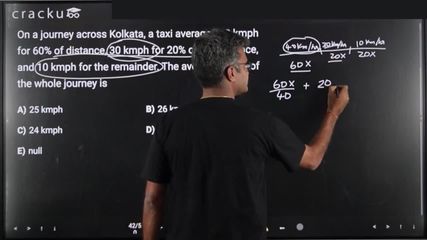 cracku
On a journey across Kolkata, a taxi averages kmph
for 60% of distance, 30 kmph for 20% of
and 10 kmph for the remainder. The of
the whole journey is
A) 25 kmph
B) 26
C) 24 kmph
D)
E) null
40 km/hr 30 km/hr 10 km/hr
60x 20x 20x
60x/40 + 20
42/5